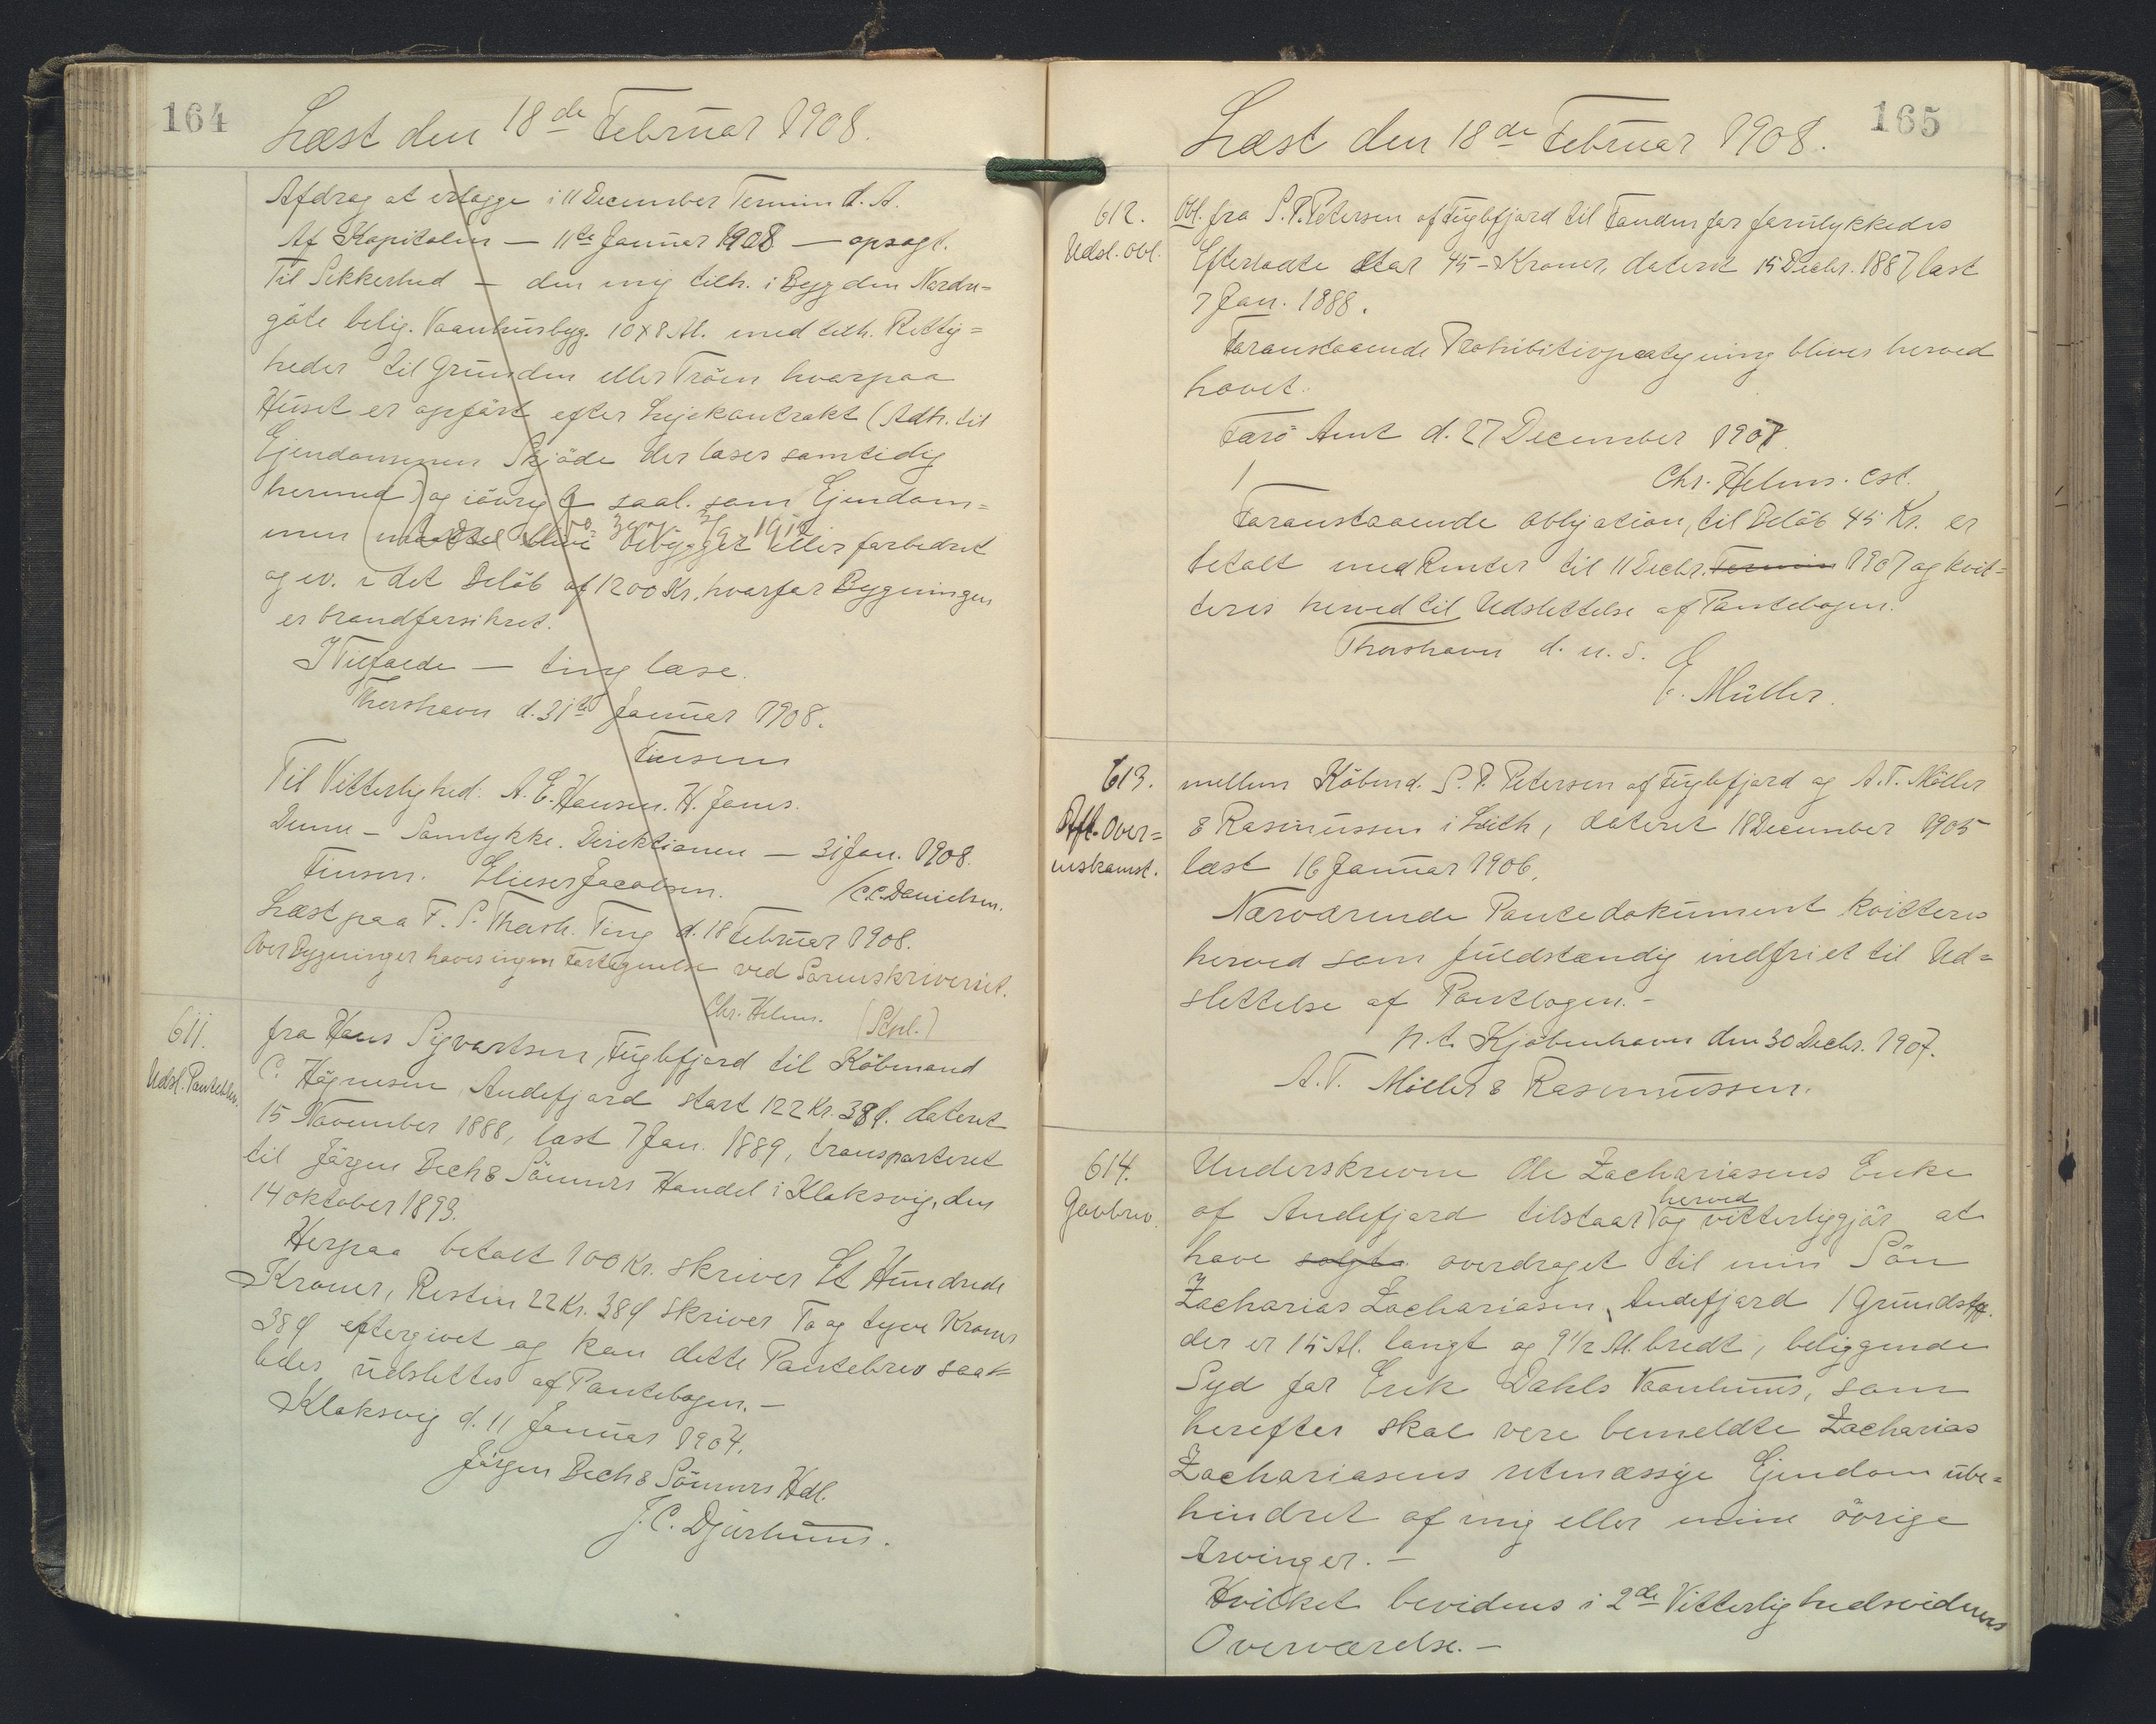 164
Læst den 18de Februar 1908.
Afdrag at erlægge i 11 December Termin d. A.
Af Kapitalen — 11te Januar 1908 — opsagt.
Til Sikkerhed — den mig tilh. i Bygden Nordre-
göte belig. Vaanhusbyg. 10 x 8 Al. med tilh. Rettig=
heder til Grunden eller Tröen hvorpaa
Huset er opfört efter Lejekontrakt (Adk. til
Ejendommen Skjöde der læses samtidig
hermed) og iövrigt saal. som Ejendom=
men maatte blive bebygget eller forbedret
og ev. i det Belöb af 1200 Kr. hvorfor Bygningen
er brandforsikret.
I Tilfælde — ting læse.
Thorshavn d. 31te Januar 1908.
Finsen
Til Vitterlighed: A. E. Hansen. H. Jones.
Denne — Samtykke. Direktionen — 31 Jan. 1908.
Finsen. Elieser Jacobsen. / C.C. Danielsen.
Læst paa F. S. Thorsh. Ting d. 18 Februar 1908.
Over Bygninger haves ingen Fortegnelse ved Sorenskriveriet.
Chr. Helms. (Sthl.)
611.
Udsl. Pantebrev.
fra Hans Sigvartsen, Fuglefjord til Köbmand
C. Högnesen, Andefjord stort 122 Kr. 38 Ø. dateret
15 November 1888, læst 7 Jan. 1889, transporteret
til Jörgen Bech & Sönners Handel i Klaksvig, den
14 Oktober 1893.
Herpaa betalt 100 Kr. skriver Et Hundrede
Kroner, Resten 22 Kr. 38 Ø skriver To og tyve Kroner
38 Ø eftergivet og kan dette Pantebrev saa-
ledes udslettes af Pantebogen. —
Klaksvig d. 11 Januar 1904.
Jörgen Bech & Sönners Hdl.
J. C. Djurhuus.
165
Læst den 18de Februar 1908.
612.
Udsl. Obl.
Obl. fra S. P. Petersen af Fuglefjord til Fonden for forulykkedes
Efterladte stor 45 - Kroner, dateret 15 Decbr. 1887, læst
7 Jan. 1888.
Foranstaaende Prohibitivpaategning bliver herved
hævet.
Færö Amt d. 27 December 1907.
Chr. Helms. cst.
Foranstaaende Obligation, til Belöb 45 Kr. er
betalt med Renter til 11 Decbr. Termin 1907 og kvit=
teres herved til Udslettelse af Pantebogen.
Thorshavn d. u. S.
E. Müller.
613.
Afl. Over=
enskomst.
mellem Köbmd. S. P. Petersen af Fuglefjord og A. T. Möller
& Rasmussen i Leith, dateret 18 December 1905
læst 16 Januar 1906.
Nærværende Pantedokument kvitteres
herved som fuldstændig indfriet til Ud=
slettelse af Pantebogen. —
p. t. Kjöbenhavn den 30 Decbr. 1907.
A. T. Möller & Rasmussen.
614.
Gavebrev.
Underskrevne Ole Zachariasens Enke
af Andefjord tilstaar herved og vitterliggjör at
have solgt overdraget til min Sön
Zacharias Zachariasen, Andefjord 1 Grundstk.
der er 15 Al. langt og 9 1/2 Al. bredt, beliggende
Syd for Erik Dahls Vaanhuus, som
herefter skal være bemeldte Zacharias
Zachariasens retmæssige Ejendom ube=
hindret af mig eller mine övrige
Arvinger. —
Hvilket bevidnes i 2de Vitterlighedsvidners
Overværelse. —